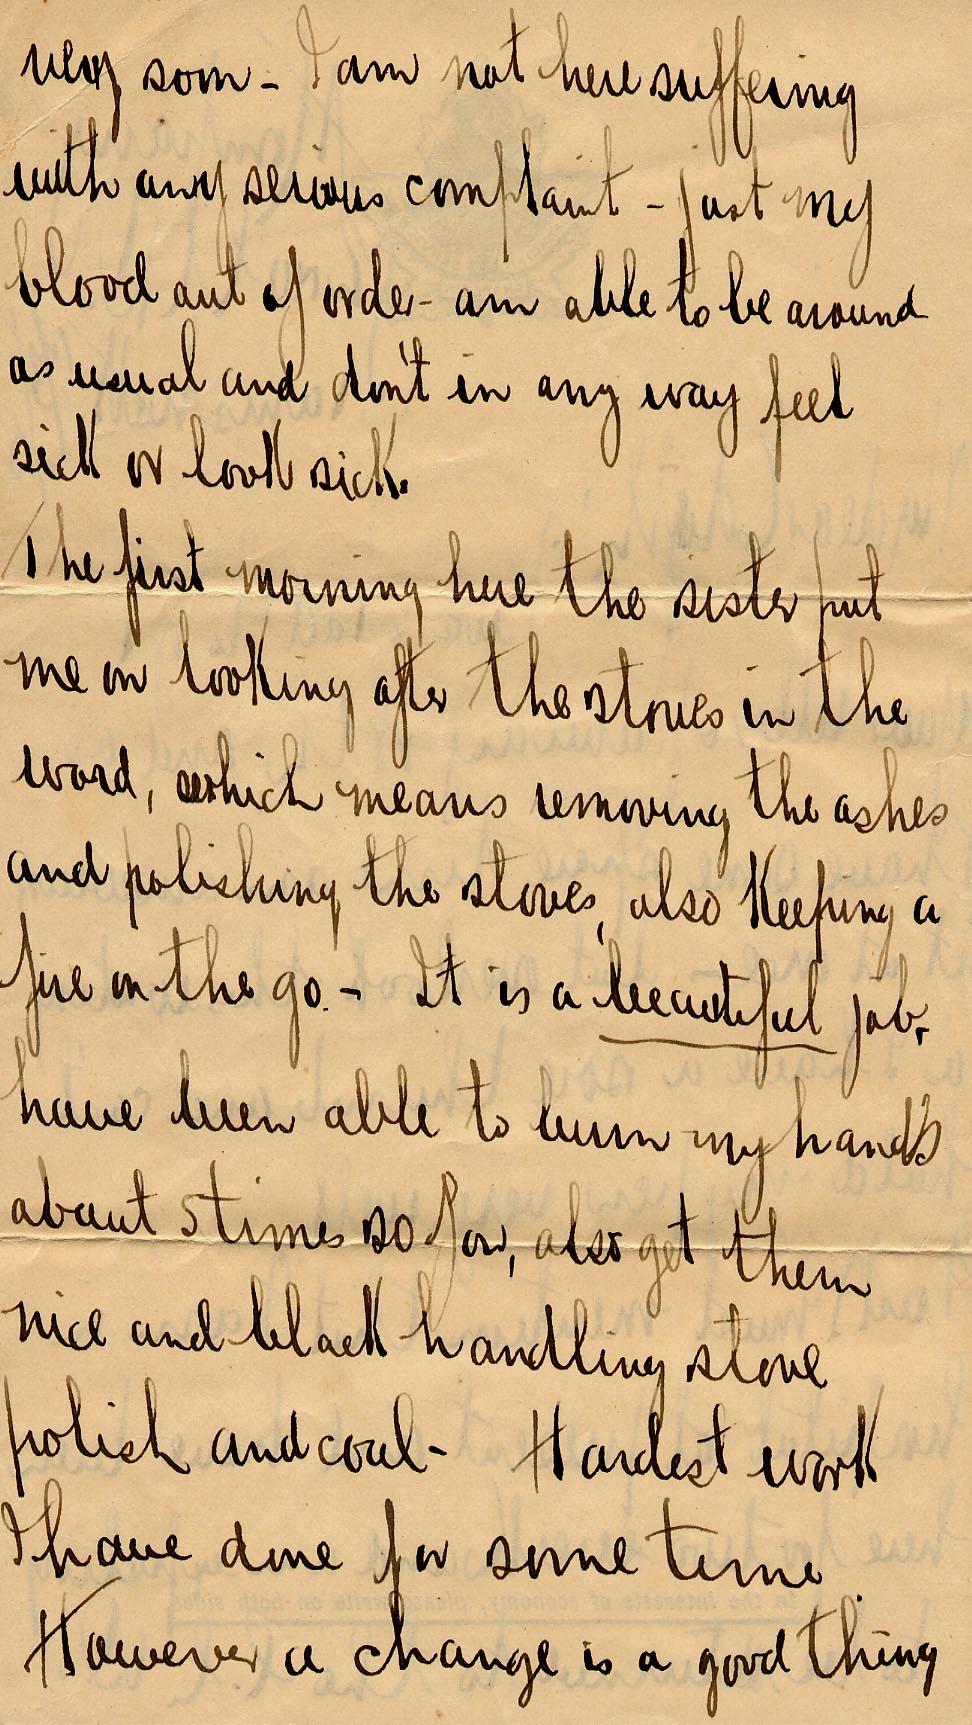 very soon - I am not here suffering
with any serious complaint - just my
blood out of order - am able to be around
as usual and don't in any way feel
sick or look sick.
The first morning here the sister put
me on looking after the stoves in the
ward, which means removing the ashes
and polishing the stoves, also keeping a
fire on the go. - It is a beautiful job,
have been able to burn my hands
about 5 times so far, also get them
nice and black handling stove
polish and coal - Hardest work
I have done for some time
However a change is a good thing